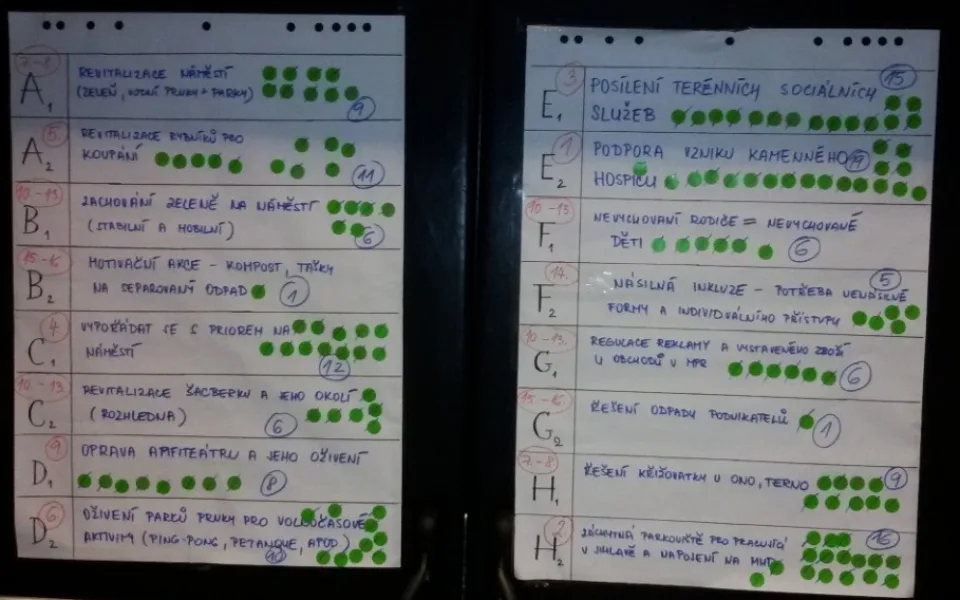 7.-8.
A1
REVITALIZACE NÁMĚSTÍ
(ZELEŇ, VODNÍ PRVKY + PARKY)
9
5.
A2
REVITALIZACE RYBNÍKŮ PRO
KOUPÁNÍ
11
10.-13.
B1
ZACHOVÁNÍ ZELENĚ NA NÁMĚSTÍ
(STABILNÍ A MOBILNÍ)
6
15.-16.
B2
MOTIVAČNÍ AKCE - KOMPOST, TAŠKY
NA SEPAROVANÝ ODPAD
1
4.
C1
VYPOŘÁDAT SE S PRIOREM NA
NÁMĚSTÍ
12
10.-13.
C2
REVITALIZACE ŠACBERKU A JEHO OKOLÍ
(ROZHLEDNA)
6
9.
D1
OPRAVA AMFITEÁTRU A JEHO OŽIVENÍ
8
6.
D2
OŽIVENÍ PARKŮ PRVKY PRO VOLNOČASOVÉ
AKTIVITY (PING-PONG, PETANQUE, APOD.)
10
3.
E1
POSÍLENÍ TERÉNNÍCH SOCIÁLNÍCH
SLUŽEB
15
1.
E2
PODPORA VZNIKU KAMENNÉHO
HOSPICU
19
10.-13.
F1
NEVYCHOVANÍ RODIČE = NEVYCHOVANÉ
DĚTI
6
14.
F2
NÁSILNÁ INKLUZE - POTŘEBA NENÁSILNÉ
FORMY A INDIVIDUÁLNÍHO PŘÍSTUPU
5
10.-13.
G1
REGULACE REKLAMY A VYSTAVENÉHO ZBOŽÍ
U OBCHODŮ V MPR
6
15.-16.
G2
ŘEŠENÍ ODPADY PODNIKATELŮ
1
7.-8.
H1
ŘEŠENÍ KŘIŽOVATKY U ONO, TERNO
9
2.
H2
ZÁCHYTNÁ PARKOVIŠTĚ PRO PRACUJÍCÍ
V JIHLAVĚ A NAPOJENÍ NA MHD
16